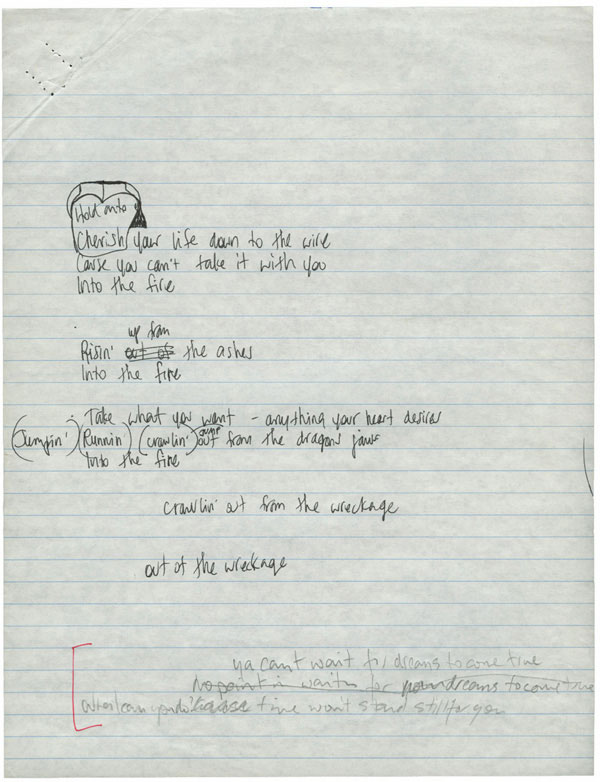 Hold onto
Cherish your life down to the wire
Cause you can't take it with you
Into the fire
up from
Risin' out of the ashes
Into the fire
Take what you want - anything your heart desires
(Jumpin') (Runnin) (crawlin') out from the dragons jaws
Into the fire
crawlin' out from the wreckage
out of the wreckage
ya cant wait for dreams to come true
No point in waitin for your dreams to come true
time wont stand still for you